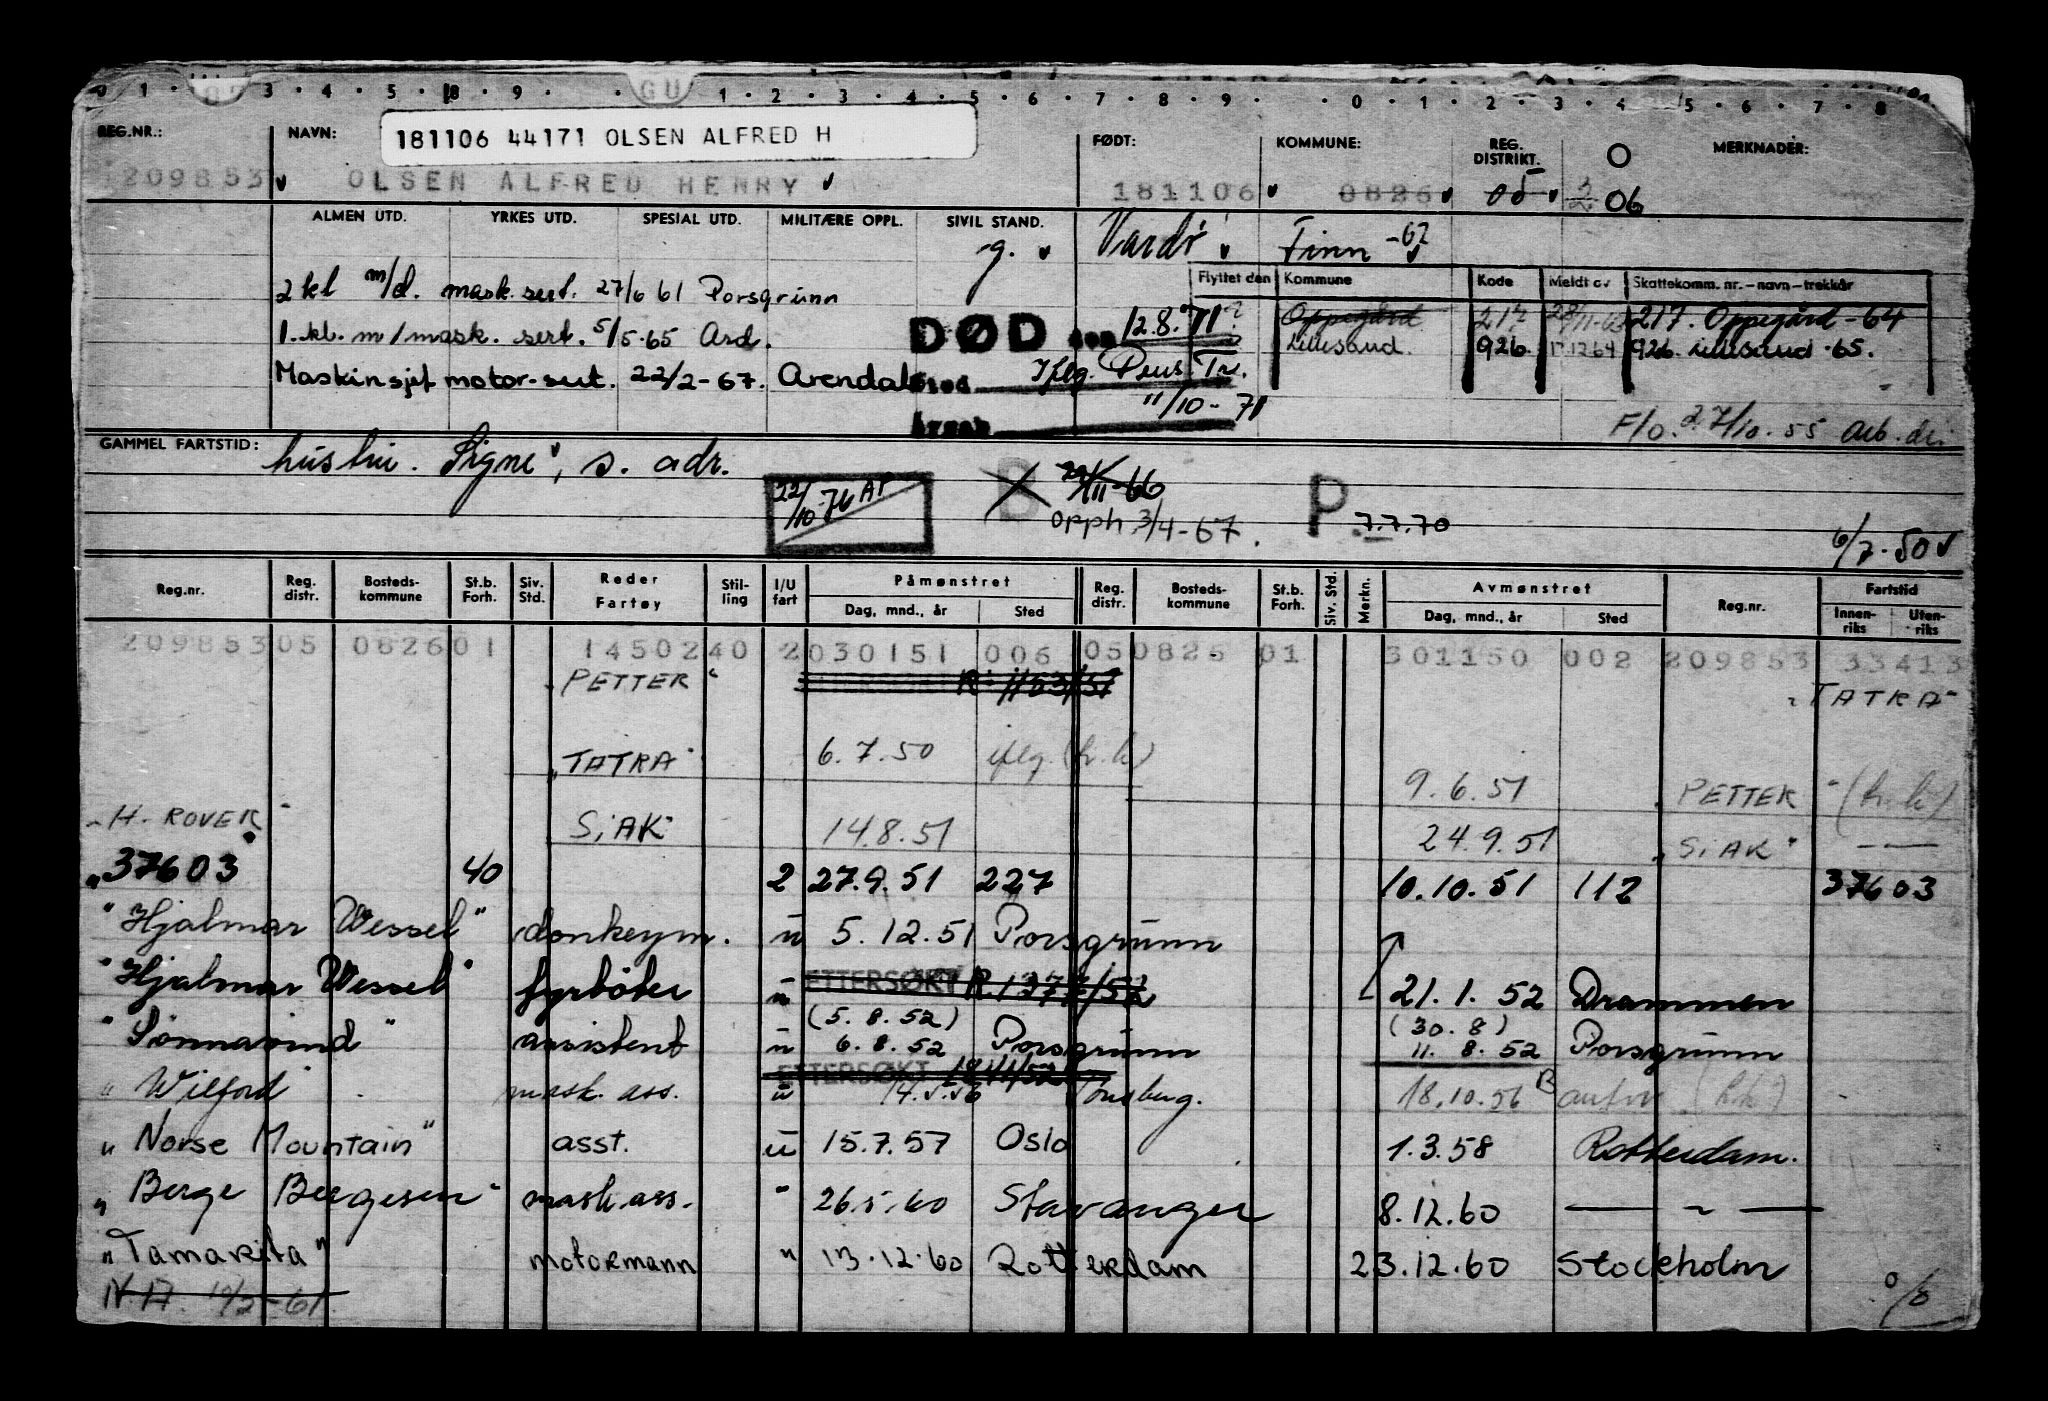 0 1 3 4 5 8 9 GU 1 2 3 4 5 6 7 8 9 0 1 2 3 4 5 6 7 8
REG.NR.: NAVN: 181106 44171 OLSEN ALFRED H FØDT: KOMMUNE: REG. DISTRIKT. O MERKNADER:
209853 OLSEN ALFRED HENRY 181106 0826 05 06
ALMEN UTD. YRKES UTD. SPESIAL UTD. MILITÆRE OPPL. SIVIL STAND.
g. Vardø Finn -62
Flyttet den Kommune Kode Meldt av Skattekomm. nr.-navn-trekkår
2 kl m/d. mask. sert. 27/6 61 Porsgrunn
DØD den 12.8.71 Oppegård 217 217. Oppegård-64
1. kl. m/mask. sert. 5/5-65 Ard. Lillesand. 926 17.12.64 926 Lillesand -65.
Maskinsjef motor-sert. 22/2-67. Arendal Sted Iflg. Pens. Tr.
Årsak 11/10-71
F/o. 27/10.55 Arb. dir.
GAMMEL FARTSTID: hustru. Signe, s. adr.
22/10-76 AP B 29/11-66 P 7.7.70
opph. 3/4-67.
6/7.50
Reg.nr. Reg. distr. Bosteds-kommune St.b. Forh. Siv. Std. Reder Fartøy Stil-ling I/U fart Påmønstret Dag, mnd., år Sted Reg. distr. Bosteds-kommune St.b. Forh. Siv. Std. Merkn. Avmønstret Dag, mnd., år Sted Reg.nr. Fartstid Innen-riks Uten-riks
209853 05 0826 01 1450240 2 030151 006 05 0826 01 301150 002 209853 33413
"PETTER" R 1153/51 "TATRA"
"TATRA" 6.7.50 iflg. (h.h)
9.6.51 "PETTER" (h.h)
"H. ROVER" "SIAK" 14.8.51 24.9.51 "SIAK"
"37603 40 2 27.9.51 227 10.10.51 112 37603
"Hjalmar Wessel" donkeym. u 5.12.51 Porsgrunn
"Hjalmar Wessel" fyrbøter u ETTERSØKT R.1377/52 21.1.52 Drammen
(5.8.52) (30.8)
"Sønnavind" assistent u 6.8.52 Porsgrunn 11.8.52 Porsgrunn
ETTERSØKT 1841/52
"Wilford" mask. ass. u 14.5.56 Tønsberg. 18.10.56
"Norse Mountain" asst. u 15.7.57 Oslo 1.3.58 Rotterdam.
"Berge Bergesen" mask.ass. " 26.5.60 Stavanger 8.12.60 — " —
"Tamarita" motormann " 13.12.60 Rotterdam 23.12.60 Stockholm
N.A. 10/2-61. %